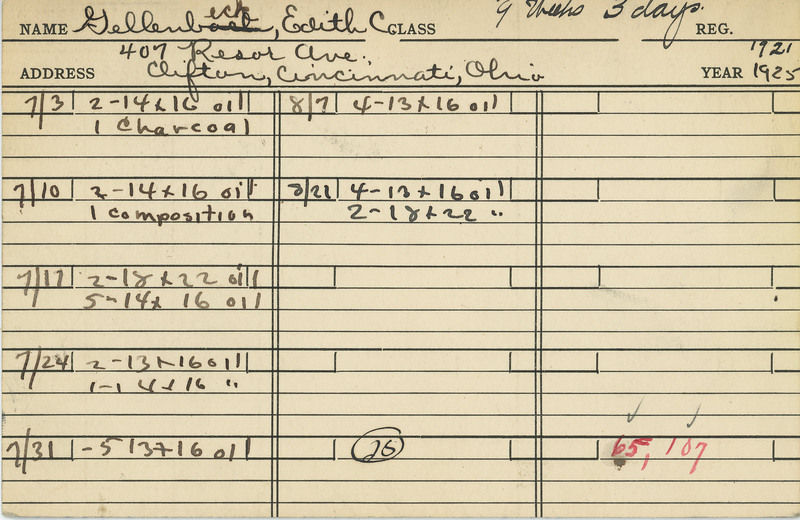 NAME Gellenbeck, Edith C. CLASS 9 Weeks 3 days. REG.
407 Resor Ave., 1921
ADDRESS Clifton, Cincinnati, Ohio YEAR 1925
7/3 2-14x16 oil 8/7 4-13x16 oil
1 Charcoal
7/10 2-14x16 oil 8/21 4-13x16 oil
1 composition 2-18x22 "
7/17 2-18x22 oil
5-14x16 oil
7/24 2-13x16 oil
1-14x16 "
7/31 -5 13x16 oil 26 65, 107